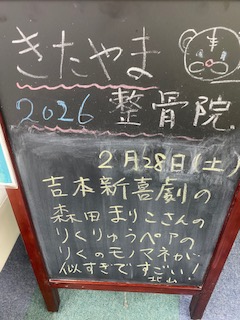 きたやま
2026 整骨院
2月28日(土)
吉本新喜劇の
森田まりこさんの
りくりゅうペアの
りくのモノマネが
似すぎですごい!
北山